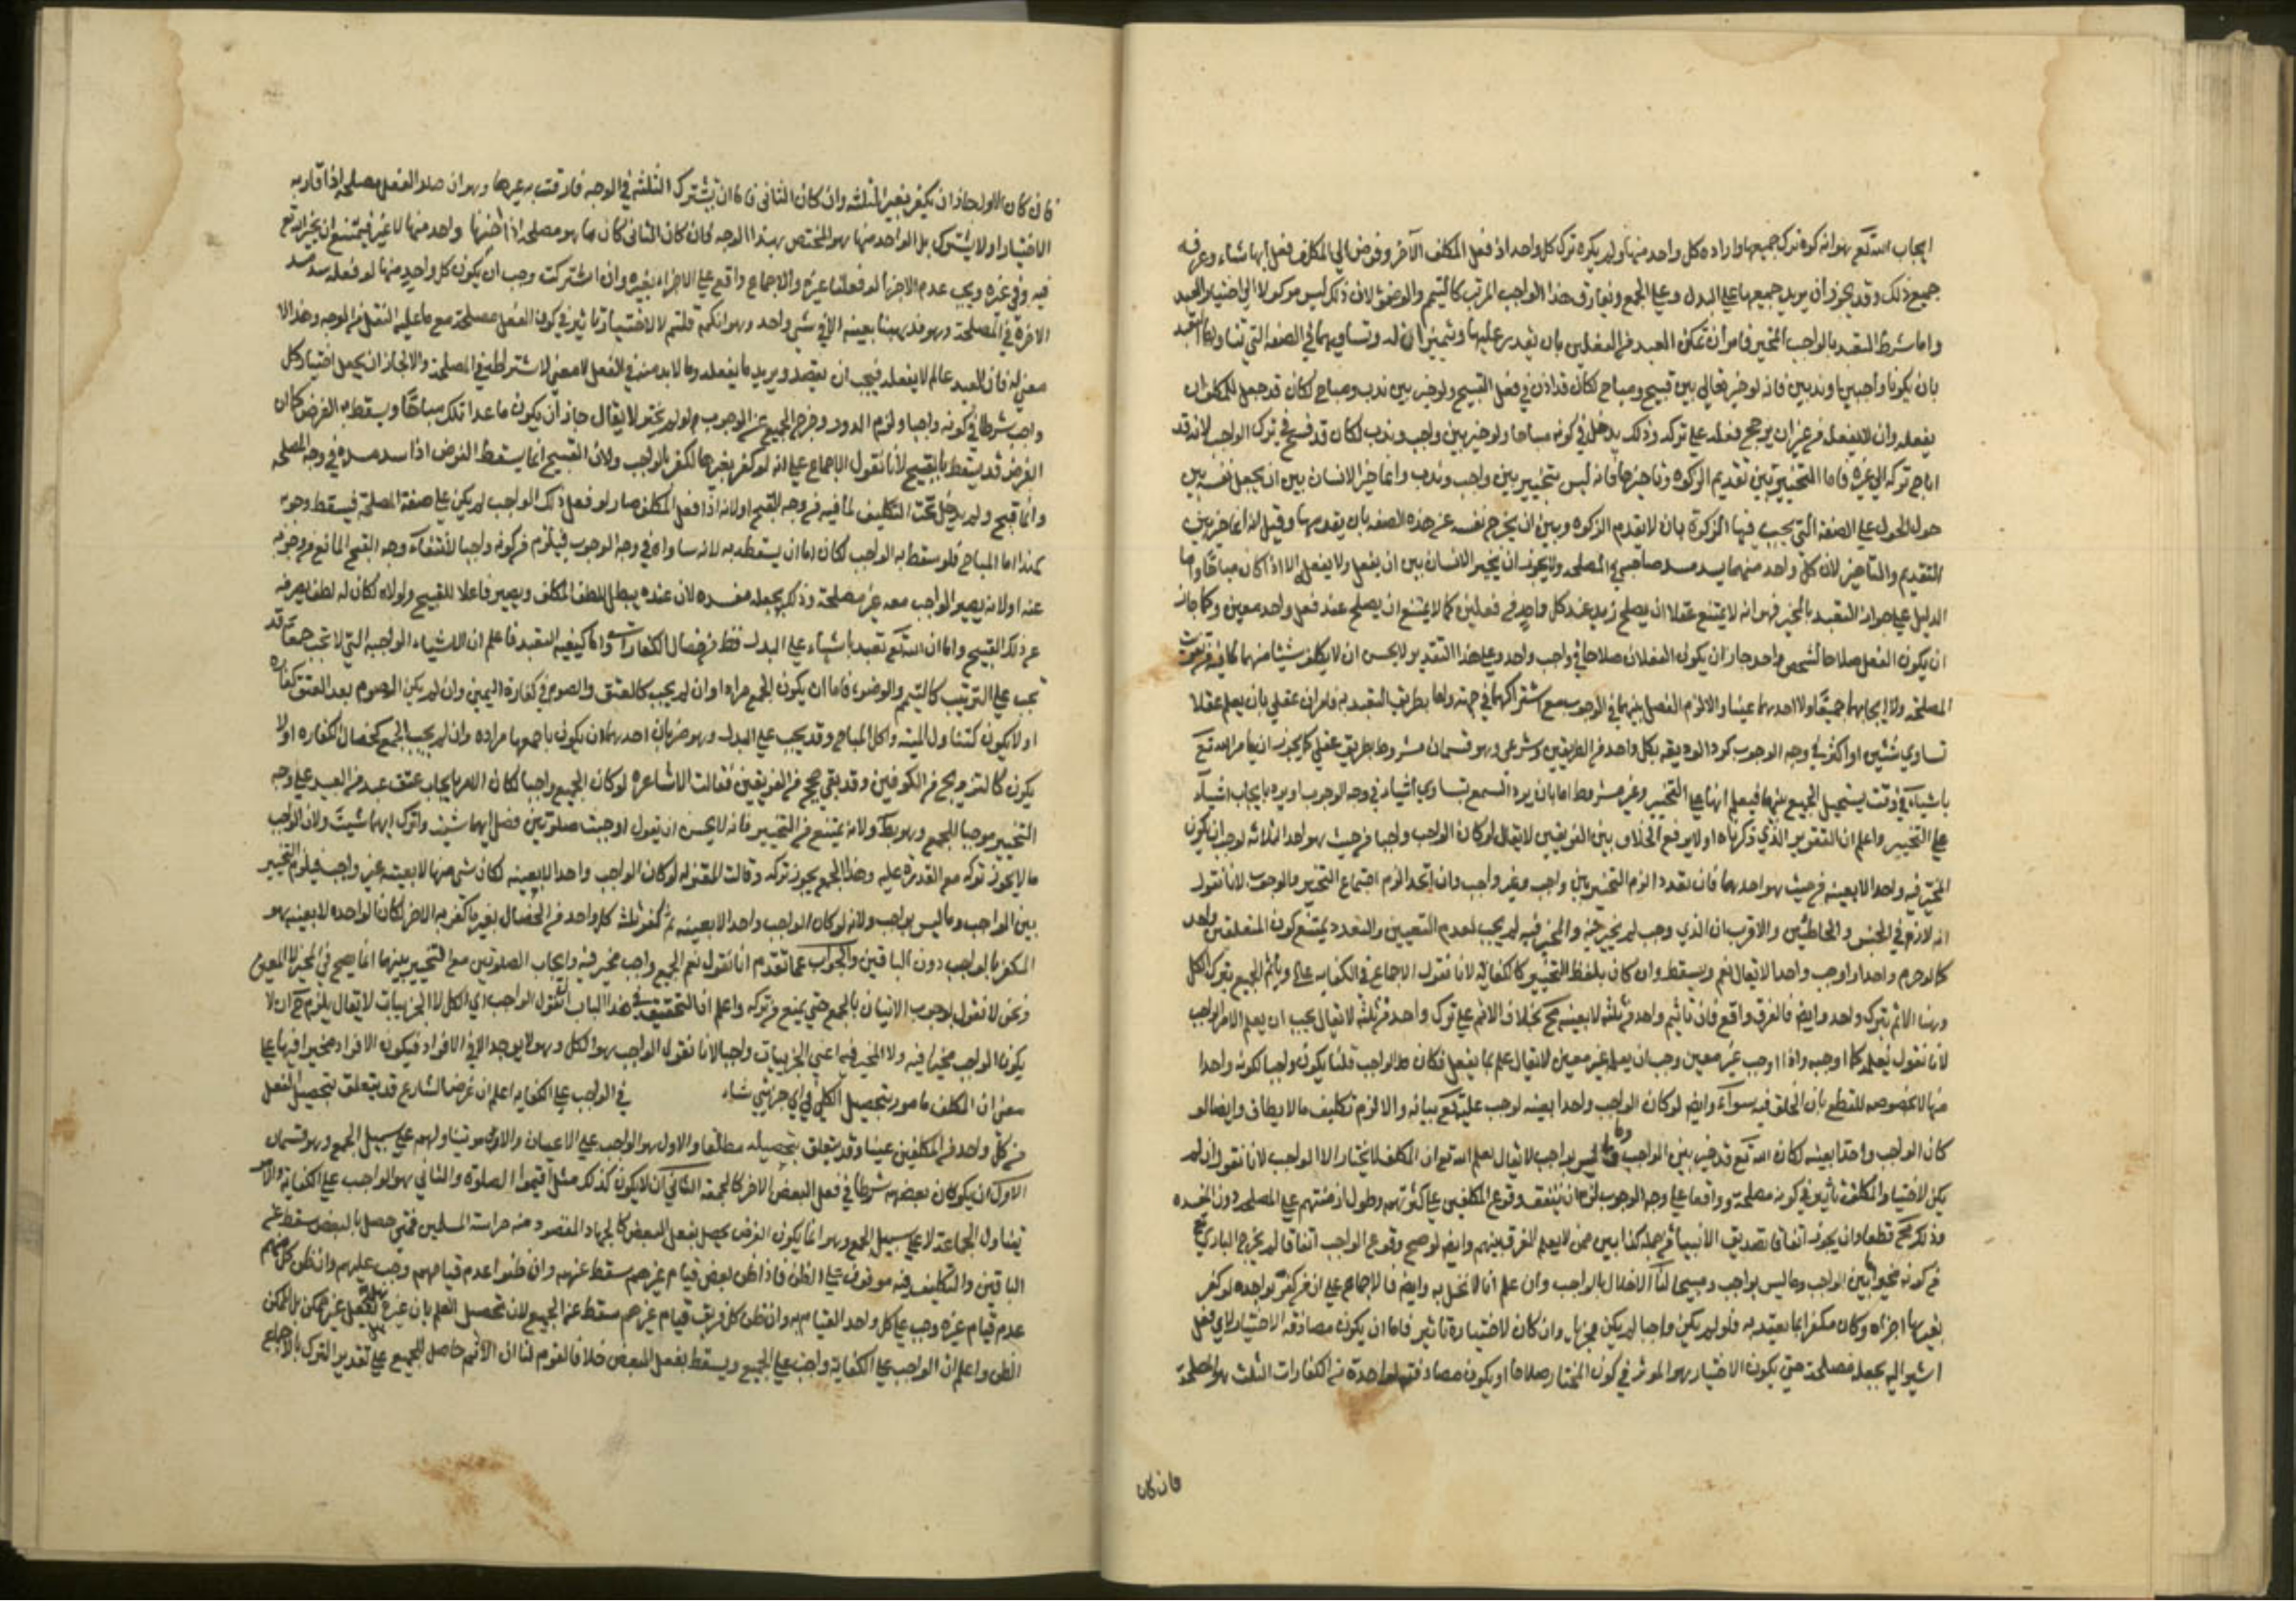 ايجاب الله تع هو انه كره ترك جميعها واراده كل واحد منها ولم يكره ترك كل واحد اذا فعل المكلف الآخر وفوض الى المكلف فعل ايها شاء وعرفه
جميع ذلك وقد يجوز ان يريد جميعها على البدل وعلى الجمع ويفارق هذا الواجب المرتب كالتيمم والوضوء لان ذلك ليس موكولا الى اختيار العبد
واما شرط التعبد بالواجب المخير فامران تمكن العبد من الفعلين بان يقدر عليهما ويتميزان له وتساويهما في الصفة التي تناولها التعبد
بان يكونا واجبين او ندبين فانه لو خير تعالى بين قبيح ومباح لكان قد اذن في فعل القبيح ولو خير بين ندب ومباح لكان قد جعل للمكلف ان
يفعله وان لا يفعله من غير ان يرجح فعله على تركه وذلك يدخل في كونه مباحا ولو خير بين واجب وندب لكان قد فسح في ترك الواجب لانه قد
اباح تركه الى غيره فاما التخيير بين تقديم الزكوة وتاخيرها فانه ليس بتخيير بين واجب وندب وانما خير الانسان بين ان يجعل نفسه بين
حول الحول على الصفة التي يجب فيها الزكوة بان لا يقدم الزكوة وبين ان يخرج نفسه عن هذه الصفة بان يقدمها وقيل انه انما خير بين
التقديم والتاخير لان كل واحد منهما يسد مسد صاحبه في المصلحة ولا يجوز ان يخير الانسان بين ان يفعل ولا يفعل الا اذا كان مباحا واما
الدليل على جواز التعبد بالمخير فهو انه لا يمتنع عقلا ان يصلح زيد عند كل واحد من فعلين كما لا يمتنع ان يصلح عند فعل واحد معين وكما جاز
ان يكون الفعل صلاحا لشخص واحد جاز ان يكون الفعلان صلاحا في واجب واحد وعلى هذا التقدير لا يحسن ان لا يكلف شيئا منهما لما فيه من تفويت
المصلحة ولا ايجابهما جميعا ولا احدهما عينا والا لزم الفصل بينهما في الوجوب مع اشتراكهما في جهته واما طريق التعبد به فامران عقلي بان يعلم عقلا
تساوي شيئين او اكثر في وجه الوجوب كرد الوديعة بكل واحد من الطريقين وشرعي وهو قسمان مشروط بطريق عقلي كما يجوز ان يامر الله تع
باشياء في وقت يستحيل الجمع بينها فيعلم انها على التخيير وغير مشروط اما بان يرد السمع بتساوي اشياء في وجه الوجوب او يرد بايجاب اشياء
على التخيير واعلم ان التقرير الذي ذكرناه اولا يرفع الخلاف بين الفريقين لا يقال لو كان الواجب واجبا من حيث هو احد الثلاثة لوجب ان يكون
المخير فيه واحدا لا بعينه من حيث هو احدها فان تعدد الزم التخيير بين واجب وغير واجب وان اتحد لزم اجتماع التخيير والوجوب لانا نقول
انه لازم في الجنس و الخاطبين والاقرب ان الذي وجب لم يخير فيه والمخير فيه لم يجب لعدم التعيين والتعدد يمتنع كون المتعلقين واحد
كما لو حرم واحدا واوجب واحدا لا يقال نعم ويسقط وان كان بلفظ التخيير كالكفاية لانا نقول الاجماع في الكفاية على تاثيم الجميع بترك الكل
وهنا الاثم بترك واحد وايضا فالفرق واقع فان تاثيم واحد من ثلثة لا بعينه مح بخلاف الاثم على ترك واحد من ثلثة لا يقال يجب ان يعلم الامر الواجب
لانا نقول يعلمه كما اوجبه واذا اوجب غير معين وجب ان يعلمه غير معين لا يقال علم ما يفعل فكان هو الواجب قلنا يكون واجبا لكونه واحدا
منها لا بخصوصه للقطع بان الخلق فيه سواء وايضا لو كان الواجب واحدا بعينه لوجب عليه تع بيانه والا لزم تكليف ما لا يطاق وايضا لو
كان الواجب واحدا بعينه لكان الله تع قد خير بين الواجب وما ليس بواجب لا يقال يعلم الله تع ان المكلف لا يختار الا الواجب لانا نقول ان لم
يكن لاختيار المكلف تاثير في كونه مصلحة وواقعا على وجه الوجوب لزم ان يتفق وقوع المكلفين على كثرتهم وطول ازمنتهم على المصلحة دون المفسدة
وذلك مح قطعا وان يجوز اتفاقا تصديق الانبياء من جملة كذابين ممن لا يعلم الفرق بينهم وايضا لو صح وقوع الواجب اتفاقا لم يخرج الباري تع
من كونه مخيرا بين الواجب وما ليس بواجب ومبيحا لنا الاخلال بالواجب وان علم انا لا نخل به وايضا فالاجماع على ان من كفر بواحدة لو كفر
بغيرها اجزاه وكان مكفرا بما تعبد به فلو لم يكن واجبا لم يكن مجزيا وان كان لاختياره تاثير فاما ان يكون مصادفة الاختيار لاي فعل
اشير اليه يجعله مصلحة حتى يكون الاختيار هو المؤثر في كون المختار صلاحا او يكون مصادفته لواحدة من الكفارات الثلث هو المصلحة
فان كان
فان كان الاول جاز ان يكفر بغير الثلثه وان كان الثانى فاما ان تشترك الثلثة في الوجه فارقت به غيرها وهو ان هذا الفعل مصلحة اذا قارنه
الاختيار او لا يشترك بل الواحد منها هو المختص بهذا الوجه فان كان الثاني كان ما هو مصلحة اذا اختيرها واحد منها لا غير فيمتنع ان يخير الله تع
فيه وفي غيره ويجب عدم الاجزاء لو فعلنا غيره والاجماع واقع على الاجزاء بغيره وان اشتركت وجب ان يكون كل واحد منها لو فعله سد مسد
الاخرة في المصلحة وهو قد يهبنا بعينه الا في شيء واحد وهو انكم قلتم لاختياره تاثير في كون الفعل مصلحة مع ما عليه الفعل من الوجه وهذا لا
معنى له فان العبد عالم لا يفعله فيجب ان يقصد ويريد ما يفعله وما لا بد منه في الفعل لا معنى لاشتراطه في المصلحة والا لجاز ان يجعل اختيار كل
واجب شرطا في كونه واجبا ولزم الدور وخرج الجميع عن الوجوب لو لم يختر لا يقال جاز ان يكون ما عدا تلك مباحا ويسقط به الفرض كما ان
الفرض قد يسقط بالقبيح لانا نقول الاجماع على انه لو كفر بغيرها لكفر بالواجب ولان القبيح انما يسقط الفرض اذا سد مسده في وجه المصلحة
وانما قبح ولم يدخل تحت التكليف لما فيه من وجه القبح او لانه اذا فعل المكلف صار لو فعل ذلك الواجب لم يكن على صفة المصلحة فيسقط وجوبه
لهذا اما المباح فلو سقط به الواجب لكان اما ان يسقط به لانه ساواه في وجه الوجوب فيلزم من كونه واجبا لانتفاء وجه القبح المانع من وجوبه
عنه او لانه يصير الواجب معه غير مصلحة وذلك يجعله مفسدة لان عنده يبطل لطف المكلف ويصير فاعلا للقبيح ولولاه لكان له لطف يصرفه
عن ذلك القبيح واما ان الله تع تعبد باشياء على البدل فظ من خصال الكفارات واما كيفية التعبد فاعلم ان الاشياء الواجبة التي لا تجب جمعا قد
تجب على الترتيب كالتيمم والوضوء فاما ان يكون الجمع مرادا وان لم يجب كالعتق والصوم في كفارة اليمين وان لم يكن الصوم بعد العتق كفاره
او لا يكون كتناول الميتة واكل المباح وقد يجب على البدل وهو ضربان احدهما ان يكون باجمعها مرادة وان لم يجب الجمع كخصال الكفارة او لا
يكون كالتزويج من الكوفين وقد بقي حجج من الفريقين فقالت الاشاعرة لو كان الجميع واجبا لكان الامر بايجاب عتق عبد من العبيد على وجه
التخيير موجبا للجميع وهو بط ولانه يمتنع من التخيير فانه لا يحسن ان يقول اوجبت صلوتين فصل ايهما شئت واترك ايهما شئت ولان الواجب
ما لا يجوز تركه مع القدرة عليه وهذا الجمع يجوز تركه وقالت المعتزلة لو كان الواجب واحدا لا بعينه لكان شي منها لا بعينه غير واجب فيلزم التخيير
بين الواجب وما ليس بواجب ولانه لو كان الواجب واحدا لا بعينه ثم كفر ثلثة كل واحد من الخصال بغير ما كفر به الاخر لكان الواحد لا بعينه هو
المكفر بالواجب دون الباقين والجواب عما تقدم انا نقول نعم الجميع واجب مخير فيه وايجاب الصلوتين مع التخيير بينهما انما يصح في المخير لا المعين
ونحن لا نقول بوجوب الاتيان بالجمع حتى يمنع من تركه واعلم ان التحقيق في هذا الباب ان نقول الواجب هو الكل لا الجزئيات لا يقال يلزم ح ان لا
يكون الواجب مخيرا فيه ولا المخير فيه اعني الجزئيات واجبا لانا نقول الواجب هو الكل وهو لا يوجد الا في الافراد فيكون الافراد مخيرا فيها على
معنى ان المكلف مامور بتحصيل الكلي في اي جزئي شاء في الواجب على الكفايه اعلم ان غرض الشارع قد يتعلق بتحصيل الفعل
من كل واحد من المكلفين عينا وقد يتعلق بتحصيله مطلقا والاول هو الواجب على الاعيان والامر هو تناولهم على سبيل الجمع وهو قسمان
الاول ان يكون كان بعضهم شرطا في فعل البعض الاخر كالجمعة الثاني ان لا يكون كذلك مثل اقيموا الصلوة والثاني هو الواجب على الكفاية والامر
يتناول الجماعة لا على سبيل الجمع وهو انما يكون الغرض يحصل بفعل البعض كالجهاد المقصود منه حراسة المسلمين فمتى حصل بالبعض سقط عن
الباقين والتكليف فيه موقوف على الظن فاذا ظن بعض قيام غيرهم سقط عنهم وان ظنوا عدم قيامهم وجب عليهم وان ظن كل منهم
عدم قيام غيره وجب على كل واحد القيام به وان ظن كل فريق قيام غيرهم سقط عن الجميع لان تحصيل العلم بان غيره يفعل غير ممكن بل الممكن
الظن واعلم ان الواجب على الكفاية واجب على الجميع ويسقط بفعل البعض خلافا لقوم لنا ان الاثم حاصل للجميع على تقدير الترك بالاجماع